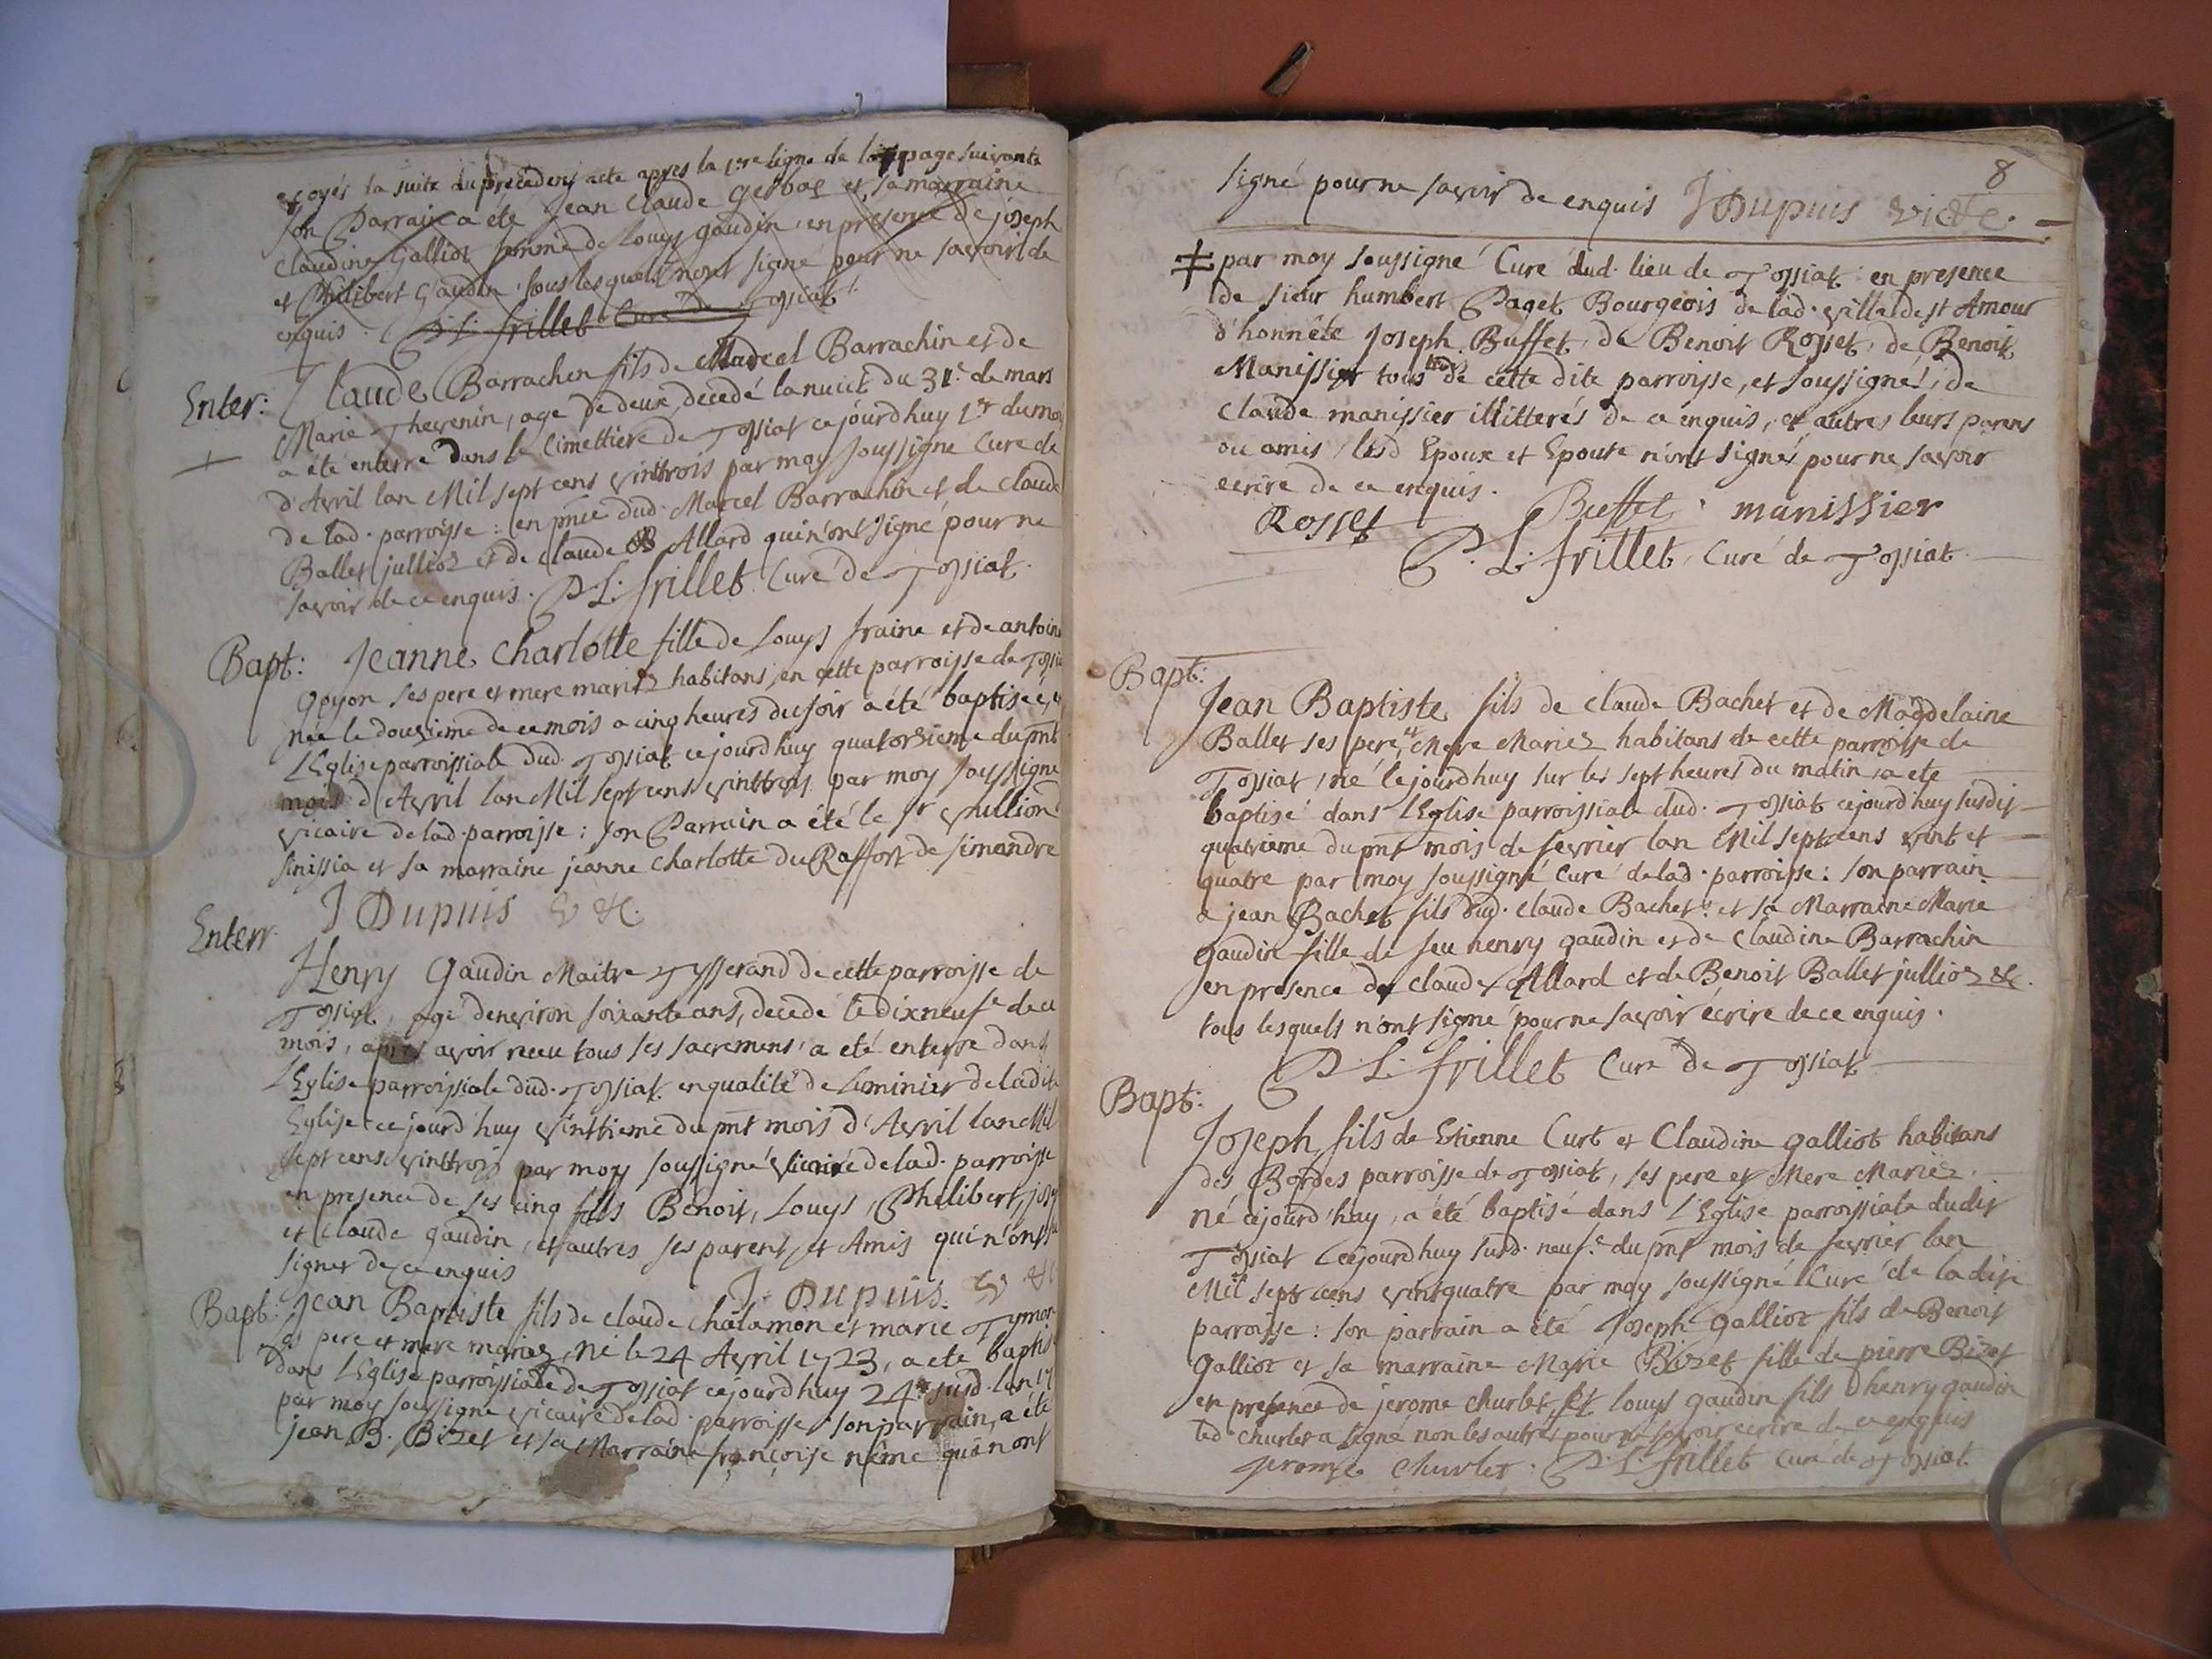 et voyés la suite du précédent acte apres la 1re ligne de la page suivante
son Parrain a été Jean Claude Gerboz et sa marraine
Claudine Galliot femme de Louys gaudin, en presence de joseph
et Philibert Gaudin tous lesquels n'ont signé pour ne savoir de
enquis. P. L. frillet Curé de Tossiat.
Enter: Claude Barrachin fils de Marcel Barrachin et de
Marie Thevenin, agé de deux, decedé la nuict du 31e de mars
a été enterré dans le Cimettiere de Tossiat cejourd'huy 1er du mois
d'Avril lan Mil sept cens vinttrois par moy soussigné Curé de
de lad. parroisse: en pnce dud. Marcel Barrachin et de claude
Ballet jullioz et de Claude Allard qui n'ont signé pour ne
savoir de ce enquis. P. L. frillet Curé de Tossiat.
Bapt: Jeanne Charlotte fille de Louys fraine et de antoin
Goyon ses pere et mere mariez habitans en cette parroisse de Tossia
née le douzieme de ce mois a cinq heures du soir a été baptisée en
l'Eglise parroissiale dud. Tossiat cejourd'huy quatorzieme du pnt
mois d'Avril lan Mil sept cens vinttrois par moy soussigné
vicaire de lad. parroisse: son Parrain a été le sr Vullion
sinissia et sa marraine jeanne charlotte du Raffort de simandre
J Dupuis v &c.
Enterr.
Henry Gaudin Maitre Tysserand de cette parroisse de
Tossiat, agé d'environ soixante ans, decedé le dixneufe de ce
mois, après avoir receu tous ses sacremens, a été enterré dans
l'Eglise parroissiale dud. Tossiat en qualité de Luminier de ladite
Eglise cejourd'huy vinttieme du pnt mois d'Avril lan Mil
sept cens vinttrois par moy soussigné vicaire de lad. parroisse
en presence de ses cinq fils Benoit, Louys, Philibert, jos
et Claude gaudin, et autres ses parens et Amis qui n'ont sû
signer de ce enquis
J. Dupuis. v &c
Bapt: Jean Baptiste fils de claude chalamon et marie Tymor
ses pere et mere mariez, né le 24 Avril 1723, a été baptis
dans l'Eglise parroissiale de Tossiat cejourd'huy 24e susd. lan 17
par moy soussigné vicaire de lad. parroisse son parrain, a été
jean B. Bizet et sa Marraine françoise même qui n'ont
8
signé pour ne savoir de enquis J Dupuis vic &c.
‡ par moy soussigné Curé dud. lieu de Tossiat: en presence
de sieur humbert Paget Bourgeois de lad. ville de st Amour
d'honnête Joseph Buffet, de Benoit Rosset, de Benoit
Manissier tous de cette dite parroisse, et soussignés, de
Claude manissier illitterés de ce enquis, et autres leurs parens
ou amis, lesd Epoux et Epouse n'ont signé pour ne savoir
ecrire de ce enquis.
Rosset Buffet manissier
P. L. frillet, Curé de Tossiat.
Bapt:
Jean Baptiste fils de claude Bachet et de Magdelaine
Ballet ses pere et Mere Mariez habitans de cette parroisse de
Tossiat, né cejourd'huy sur les sept heures du matin, a eté
baptisé dans l'Eglise parroissiale dud. Tossiat cejourd'huy susdit
quatrieme du pnt mois de fevrier lan Mil sept cens vint et
quatre par moy soussigné Curé de lad. parroisse: son parrain
a jean Bachet fils dud. claude Bachet: et sa Marraine Marie
Gaudin fille de feu henry gaudin et de Claudine Barrachin
en presence de claude Allard et de Benoit Ballet jullioz &c.
tous lesquels n'ont signé pour ne savoir écrire de ce enquis.
P. L. frillet Curé de Tossiat
Bapt:
Joseph fils de Etienne Curt et Claudine galliot habitans
des Bordes parroisse de Tossiat, ses pere et Mere Mariez.
Né cejourd'huy, a été baptisé dans l'Eglise parroissiale dudit
Tossiat cejourd'huy susd. neufe du pnt mois de fevrier lan
Mil sept cens vint quatre par moy soussigné Curé de la dite
parroisse: son parrain a été Joseph Galliot fils de Benoit
Galliot et sa marraine Marie Bizet fille de pierre Bizet
en presence de jerome churlet et louys gaudin fils d'henry gaudin
led churlet a signé non les autres pour ne savoir ecrire de ce enquis
jerome churlet. P. L. frillet curé de Tossiat